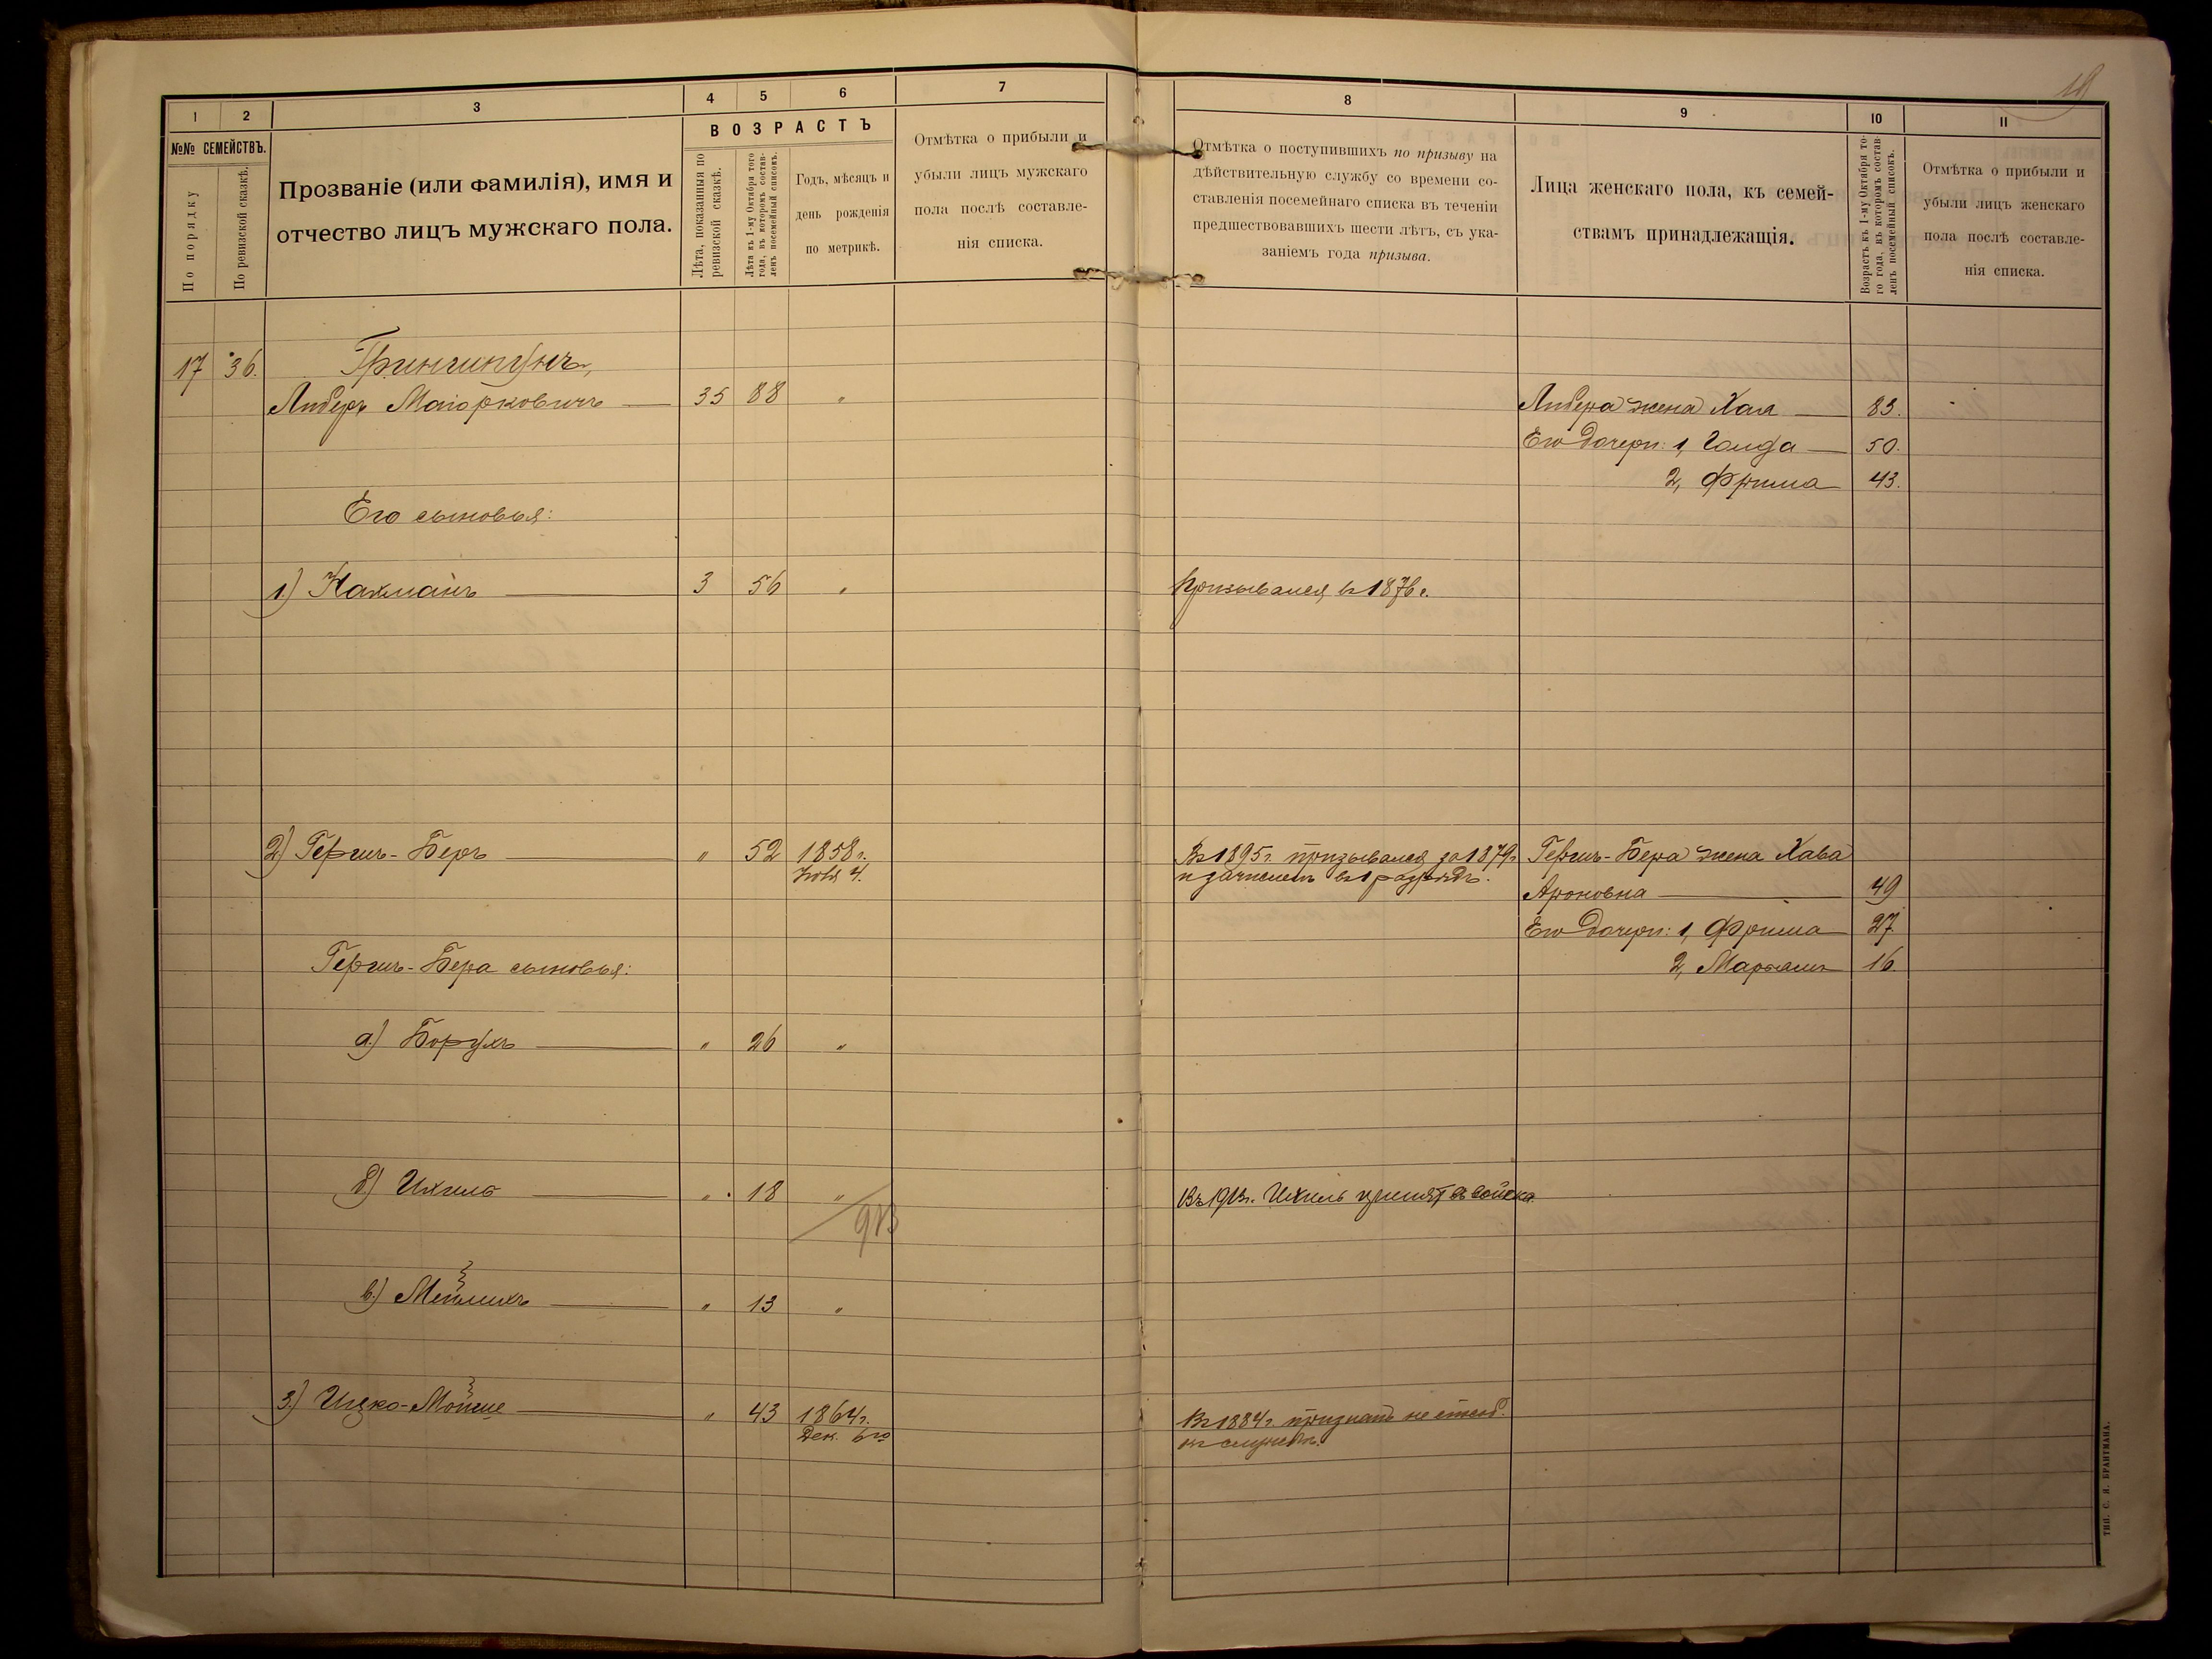 18
1 2 3 4 5 6 7
№№ СЕМЕЙСТВЪ.
По порядку
По ревизской сказкѣ.
Прозваніе (или фамилія), имя и
отчество лицъ мужскаго пола.
ВОЗРАСТЪ
Лѣта, показанныя по
ревизской сказкѣ.
Лѣта къ 1-му Октября того
года, въ которомъ состав-
ленъ посемейный списокъ.
Годъ, мѣсяцъ и
день рожденія
по метрикѣ.
Отмѣтка о прибыли и
убыли лицъ мужскаго
пола послѣ составле-
нія списка.
8 9 10 11
Отмѣтка о поступившихъ по призыву на
дѣйствительную службу со времени со-
ставленія посемейнаго списка въ теченіи
предшествовавшихъ шести лѣтъ, съ ука-
заніемъ года призыва.
Лица женскаго пола, къ семей-
ствамъ принадлежащія.
Возрастъ къ 1-му Октября то-
го года, въ которомъ состав-
ленъ посемейный списокъ.
Отмѣтка о прибыли и
убыли лицъ женскаго
пола послѣ составле-
нія списка.
17 36.
Либеръ Маіорковичъ 35 88 "
Либера жена Хая 83.
Его дочери: 1, Голда 50.
2, Фрима 43.
Его сыновья:
1) Нахманъ 3 56 "
Призывался въ 1876 г.
2) Гершъ-Беръ " 52 1858 г.
4.
Въ 1895 г. призывался за 1879 г.
и зачисленъ въ 1 разрядъ.
Гершъ-Бера жена Хава
Ароновна 49
Его дочери: 1, Фрима 27
2, Марьямъ 16.
Гершъ-Бера сыновья:
а) Борухъ " 26 "
б) Ихиль " 18 "
913
Въ 1913 г. Ихиль принятъ въ войска.
в) Мейлихъ " 13 "
3) Ицко-Мойше " 43 1864 г.
Дек. 6го
Въ 1884 г. признанъ не способ.
къ службѣ.
ТИП. С. Я. БРАНТМАНА.